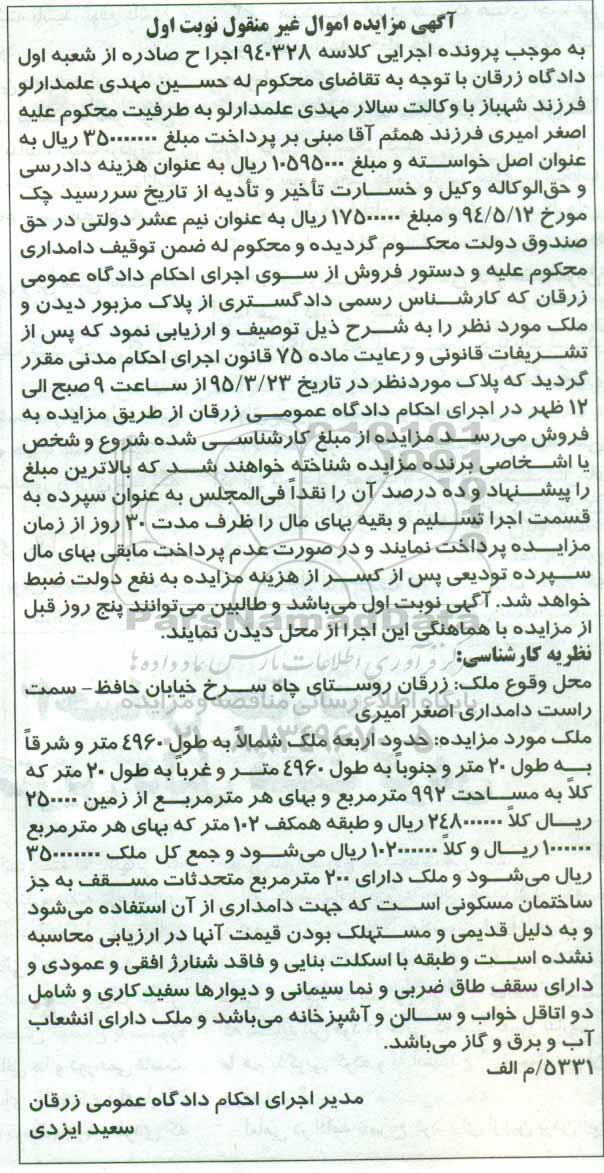 آگهی مزایده اموال غیر منقول نوبت اول
به موجب پرونده اجرایی کلاسه ۹٤۰۳۲۸ اجرا ح صادره از شعبه اول
دادگاه زرقان با توجه به تقاضای محکوم له حسین مهدی علمدارلو
فرزند شهباز با وکالت سالار مهدی علمدارلو به طرفیت محکوم علیه
اصغر امیری فرزند همئم آقا مبنی بر پرداخت مبلغ ۳۵۰۰۰۰۰۰۰ ریال به
عنوان اصل خواسته و مبلغ ۱۰۵۹۵۰۰۰ ریال به عنوان هزینه دادرسی
و حق‌الوکاله وکیل و خسارت تأخیر و تأدیه از تاریخ سررسید چک
مورخ ۹٤/۵/۱۲ و مبلغ ۱۷۵۰۰۰۰۰ ریال به عنوان نیم عشر دولتی در حق
صندوق دولت محکوم گردیده و محکوم له ضمن توقیف دامداری
محکوم علیه و دستور فروش از سوی اجرای احکام دادگاه عمومی
زرقان که کارشناس رسمی دادگستری از پلاک مزبور دیدن و
ملک مورد نظر را به شرح ذیل توصیف و ارزیابی نمود که پس از
تشریفات قانونی و رعایت ماده ۷۵ قانون اجرای احکام مدنی مقرر
گردید که پلاک موردنظر در تاریخ ۹۵/۳/۲۳ از ساعت ۹ صبح الی
۱۲ ظهر در اجرای احکام دادگاه عمومی زرقان از طریق مزایده به
فروش می‌رسد مزایده از مبلغ کارشناسی شده شروع و شخص
یا اشخاصی برنده مزایده شناخته خواهند شد که بالاترین مبلغ
را پیشنهاد و ده درصد آن را نقداً فی‌المجلس به عنوان سپرده به
قسمت اجرا تسلیم و بقیه بهای مال را ظرف مدت ۳۰ روز از زمان
مزایده پرداخت نمایند و در صورت عدم پرداخت مابقی بهای مال
سپرده تودیعی پس از کسر از هزینه مزایده به نفع دولت ضبط
خواهد شد. آگهی نوبت اول می‌باشد و طالبین می‌توانند پنج روز قبل
از مزایده با هماهنگی این اجرا از محل دیدن نمایند.
نظریه کارشناسی:
محل وقوع ملک: زرقان روستای چاه سرخ خیابان حافظ- سمت
راست دامداری اصغر امیری
ملک مورد مزایده: حدود اربعه ملک شمالاً به طول ٤۹۶۰ متر و شرقاً
به طول ۲۰ متر و جنوباً به طول ٤۹۶۰ متر و غرباً به طول ۲۰ متر که
کلاً به مساحت ۹۹۲ مترمربع و بهای هر مترمربع از زمین ۲۵۰۰۰۰
ریال کلاً ۲٤۸۰۰۰۰۰۰ ریال و طبقه همکف ۱۰۲ متر که بهای هر مترمربع
۱۰۰۰۰۰۰ ریال و کلاً ۱۰۲۰۰۰۰۰۰ ریال می‌شود و جمع کل ملک ۳۵۰۰۰۰۰۰۰
ریال می‌شود و ملک دارای ۲۰۰ مترمربع متحدثات مسقف به جز
ساختمان مسکونی است که جهت دامداری از آن استفاده می‌شود
و به دلیل قدیمی و مستهلک بودن قیمت آنها در ارزیابی محاسبه
نشده است و طبقه با اسکلت بنایی و فاقد شنارژ افقی و عمودی و
دارای سقف طاق ضربی و نما سیمانی و دیوارها سفیدکاری و شامل
دو اتاقل خواب و سالن و آشپزخانه می‌باشد و ملک دارای انشعاب
آب و برق و گاز می‌باشد.
۵۳۳۱/م الف
مدیر اجرای احکام دادگاه عمومی زرقان
سعید ایزدی
ParsNamadData
پایگاه اطلاع رسانی مناقصه و مزایده